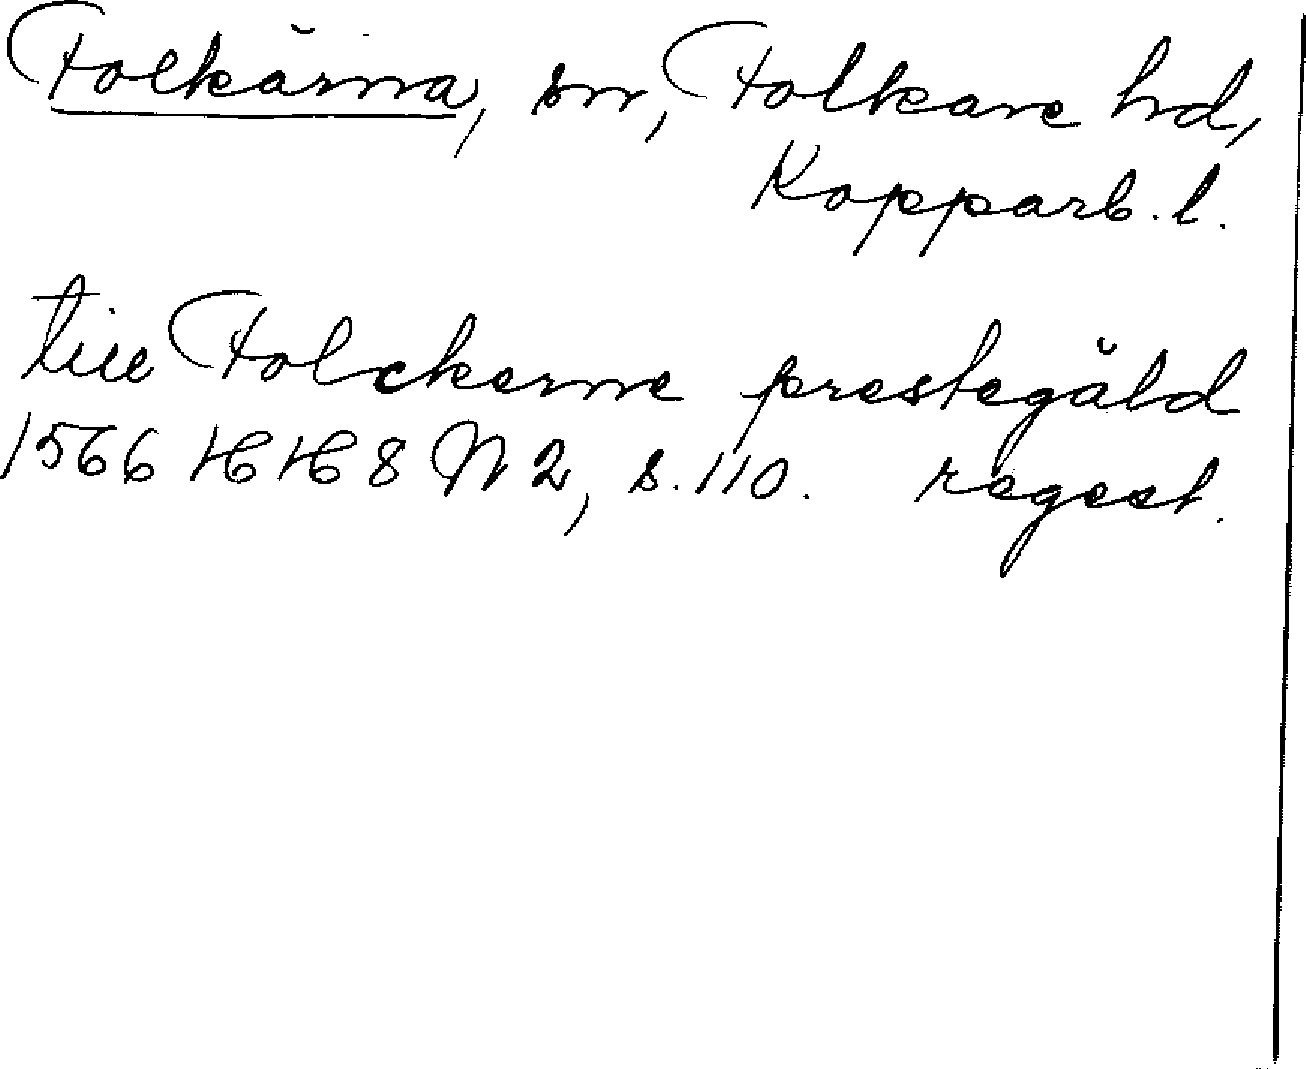 Folkärna, sn, Folkare hd,
Kopparb. l.
till Folckerne prestegäld
1566 HH 8 N 2, s. 110. regest.